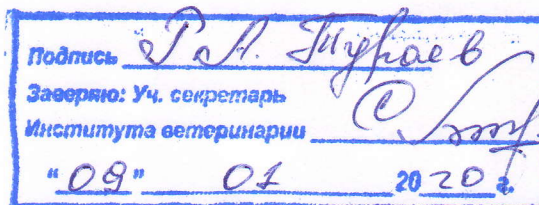 Подпись Р.А. Тураев
Заверяю: Уч. секретарь
Института ветеринарии
"09" 01 2020 г.